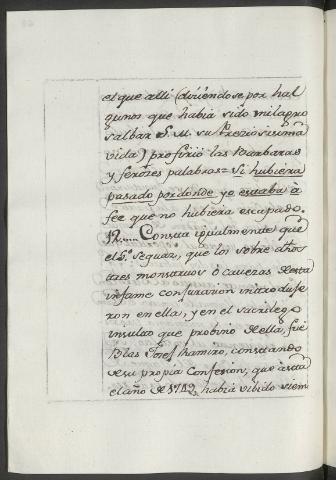 el que alli (diciendose por hal
gunos que habia sido milagro
salbar S. M. su Preziosissima
vida) profirió las Barbaras
y ferozes palabras= Si hubiera
pasado por donde yo estaba à
fee que no hubiera escapado.
Consta igualmente que
el 5.º seguaz, que los sobre dhos
tres monstruos ó cavezas de esta
infame conjuracion introduje
ron en ella, y en el sacrilego
insulto que probino de ella, fue
Blas Josef Ramiro, constando
de su propia Confesion, que asta
el año de 1749, habia vibido siem